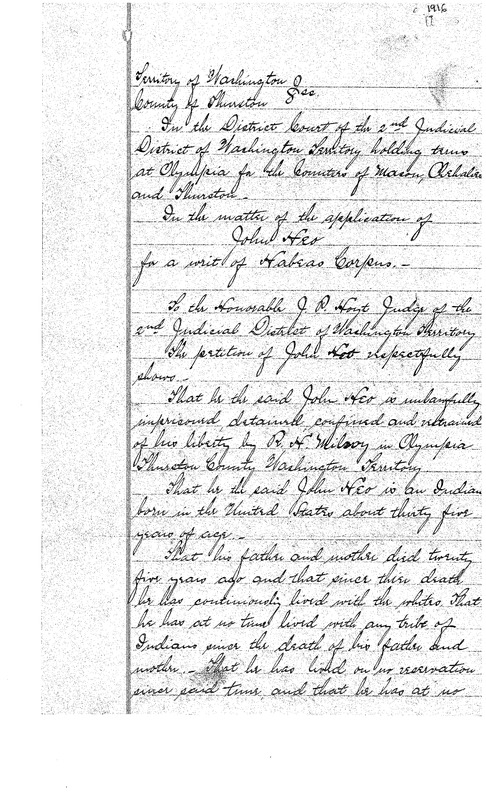 1916
Territory of Washington } ss.
County of Thurston
In the District Court of the 2nd Judicial
District of Washington Territory holding terms
at Olympia for the Counties of Mason, Chehalis
and Thurston -
In the matter of the application of
John Heo
for a writ of Habeas Corpus. -
To the Honorable J. P. Hoyt Judge of the
2nd Judicial District of Washington Territory
The petition of John Heo respectfully
shows. -
That he the said John Heo is unlawfully
imprisoned detained, confined and restrained
of his liberty by R. H. Milroy in Olympia
Thurston County Washington Territory
That he the said John Heo is an Indian
born in the United States about thirty five
years of age. -
That his father and mother died twenty
five years ago and that since their death
he has continuously lived with the whites. That
he has at no time lived with any tribe of
Indians since the death of his father and
mother. - That he has lived on no reservation
since said time, and that he has at no